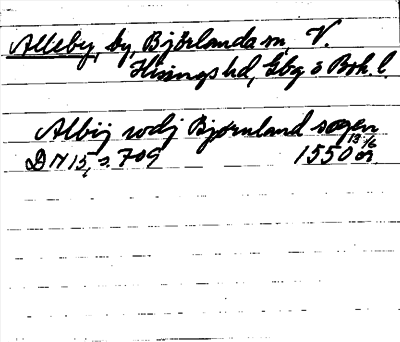 Alleby, by, Björlanda sn, V.
Hisings hd, Gbg o Boh. l.
Albij wdj Bjørnland sogen
DN 15, s. 709 1550 13/6 or.